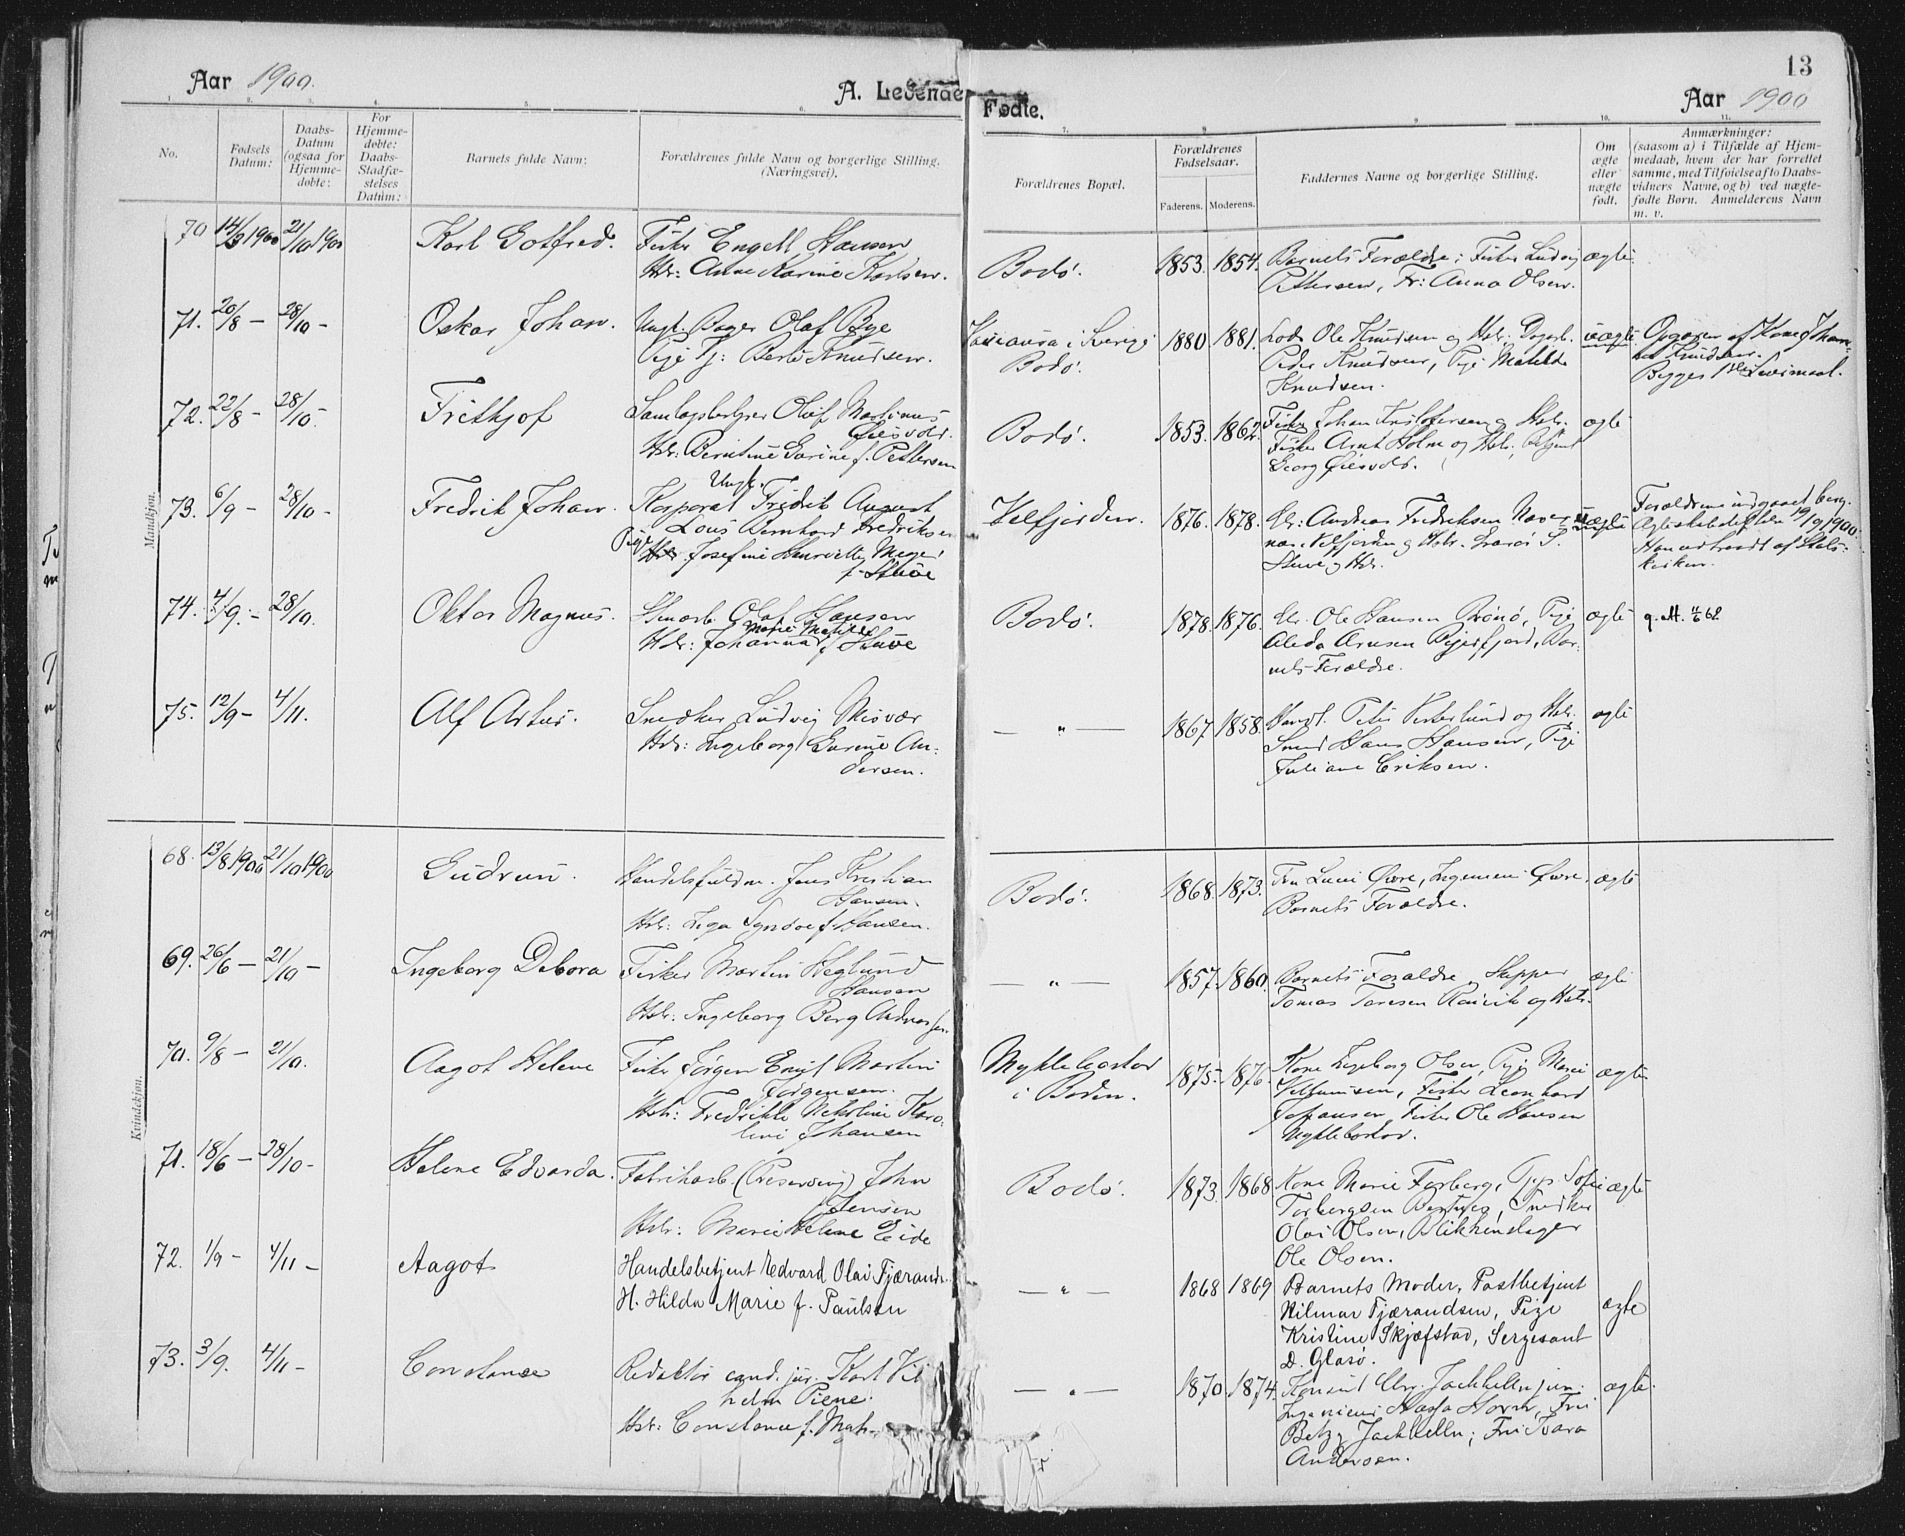 13
Aar 1900.
A. Levende
Fødte.
Aar 1900
1. 2. 3. 4. 5. 6. 7. 8. 9. 10. 11.
No.
Fødsels
Datum:
Daabs-
Datum
(ogsaa for
Hjemme-
døbte:
For
Hjemme-
døbte:
Daabs-
Stadfæ-
stelses
Datum:
Barnets fulde Navn:
Forældrenes fulde Navn og borgerlige Stilling.
(Næringsvei).
Forældrenes Bopæl.
Forældrenes
Fødselsaar.
Faderens. Moderens.
Faddernes Navne og borgerlige Stilling.
Om
ægte
eller
uægte
født.
Anmærkninger:
(saasom a) i Tilfælde af Hjem-
medaab, hvem der har forrettet
samme, med Tilføielse af to Daabs-
vidners Navne, og b) ved uægte-
fødte Børn. Anmelderens Navn
m. v.
Mandkjøn.
70 14/9 1900 21/10 1900 Karl Gotfred. Fisker Engell Hansen
Hstr: Anne Karine Karlsen.
Bodø. 1853. 1854. Barnets Forældre, Fisker Ludvig ægte
Pettersen, Fr: Anna Olsen.
71. 20/8 – 28/10 – Oskar Johan. Ungk. Bager Olaf Bye
Pige Tj: Berte Knudsen.
i Sverige
Bodø. 1880 1881. Lods Ole Knudsen og Hstr: uægte
Peder Knudsen, Pige Matilde
Knudsen.
Opgaven af Kone
Knudsen.
Begges 1ste Leiermaal.
72. 22/8 – 28/10 – Frithjof Olaf Martinus
Øiesvold.
Hstr: Berntine Karine f. Pettersen
Bodø. 1853. 1862. Fisker Johan Kristoffersen og Hstr. ægte
Fisker Arnt Holm og Hstr,
Georg Øiesvold.
73. 6/9 – 28/10 – Fredrik Johan. Ungk.
Korporal Fredrik August
Louis Bernhard Fredriksen
Pige Josefine Henriette Meyer
f. Stüve
Velfjorden. 1876. 1878. Gr: Andreas Fredriksen uægte
Velfjorden og Hstr.
Stuve og Hstr.
Forældrene indgaaet borg.
Ægteskab 19/9 1900.
Han udtraadt af Stats-
kirken.
74. 7/9. – 28/10. Oktor Magnus. Olaf Hansen
Marie Matilde
Hstr: Johanna f. Stuve
Bodø. 1878. 1876. Gr. Ole Hansen Brønø, Pige ægte
Aleda Arnsen Beierfjord, Bar-
nets Forældre.
75. 12/9 – 4/11. Alf Artur. Snedker Ludvig Misvær
Hstr: Ingeborg Gurine An-
dersen.
— " — 1867. 1858. Handl. Peter Vesterlund og Hstr. ægte
Smed Hans Hansen, Pige
Juliane Eriksen.
Kvindekjøn.
68. 13/8 1900 21/10 1900 Gudrun. Handelsfuldm. Jens Kristian
Hansen.
Hstr: Inga Synnøve f. Hansen.
Bodø. 1868. 1873. Fru Øvre, Ingeniør Øvre. ægte
Barnets Forældre.
69. 26/6 – 21/10 – Ingeborg Debora Fisker Martin Heglund
Hansen
Hstr: Ingeborg Berg Andreassen.
— " — 1857. 1860. Barnets Forældre, Skipper ægte
Tomas Toresen og Hstr.
70. 9/8 – 21/10. Aagot Helene Fisker Jørgen Emil Martin
Jørgensen.
Hstr: Fredrikke Nikoline Karo-
line Johansen
Myklebostad
i Bodin. 1875. 1876. Kone Ingeborg Olsen, Pige Marie ægte
Villumsen, Fisker Leonhard
Johansen, Fisker Ole Hansen
Myklebostad.
71. 18/6 – 28/10 – Helene Edvarda. Fabrikarb. (Preserving) John
Jensen
Hstr: Marie Helene Eide
Bodø. 1873. 1868 Kone Marie Forberg, Pige Sofie ægte
Torbergsen Snedker
Olai Olsen, Blikkenslager
Ole Olsen.
72. 1/9 – 4/11 – Aagot Handelsbetjent Edvard Olai Fjærands.
H. Hilda Marie f. Paulsen
— " — 1868 1869 Barnets Moder, Postbetjent
Hilmar Fjærandsen, Pige ægte
Kristine Skjæfstad, Sergeant
D. Glasø.
73. 3/9. 4/11 – Constance Redaktør cand. jur. Karl Vil
helm Piene.
Hstr: Constance f.
— " — 1870 1874. Konsul Chr. Jakhelln jun. ægte.
Ingeniør Horn, Frk
Betzy Jakhelln; Frk Kara
Andersen.